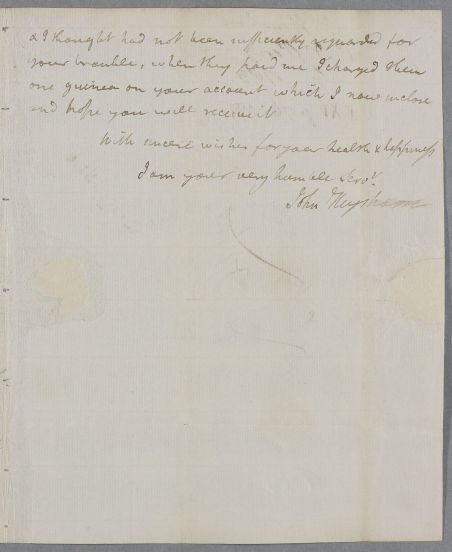 & I thought had not been sufficiently rewarded for
your trouble, when they paid me I charged them
one guinea on your account which I now inclose
and hope you will receive it
With sincere wishes for your health & happiness
I am your very humble Servt.
John Heysham